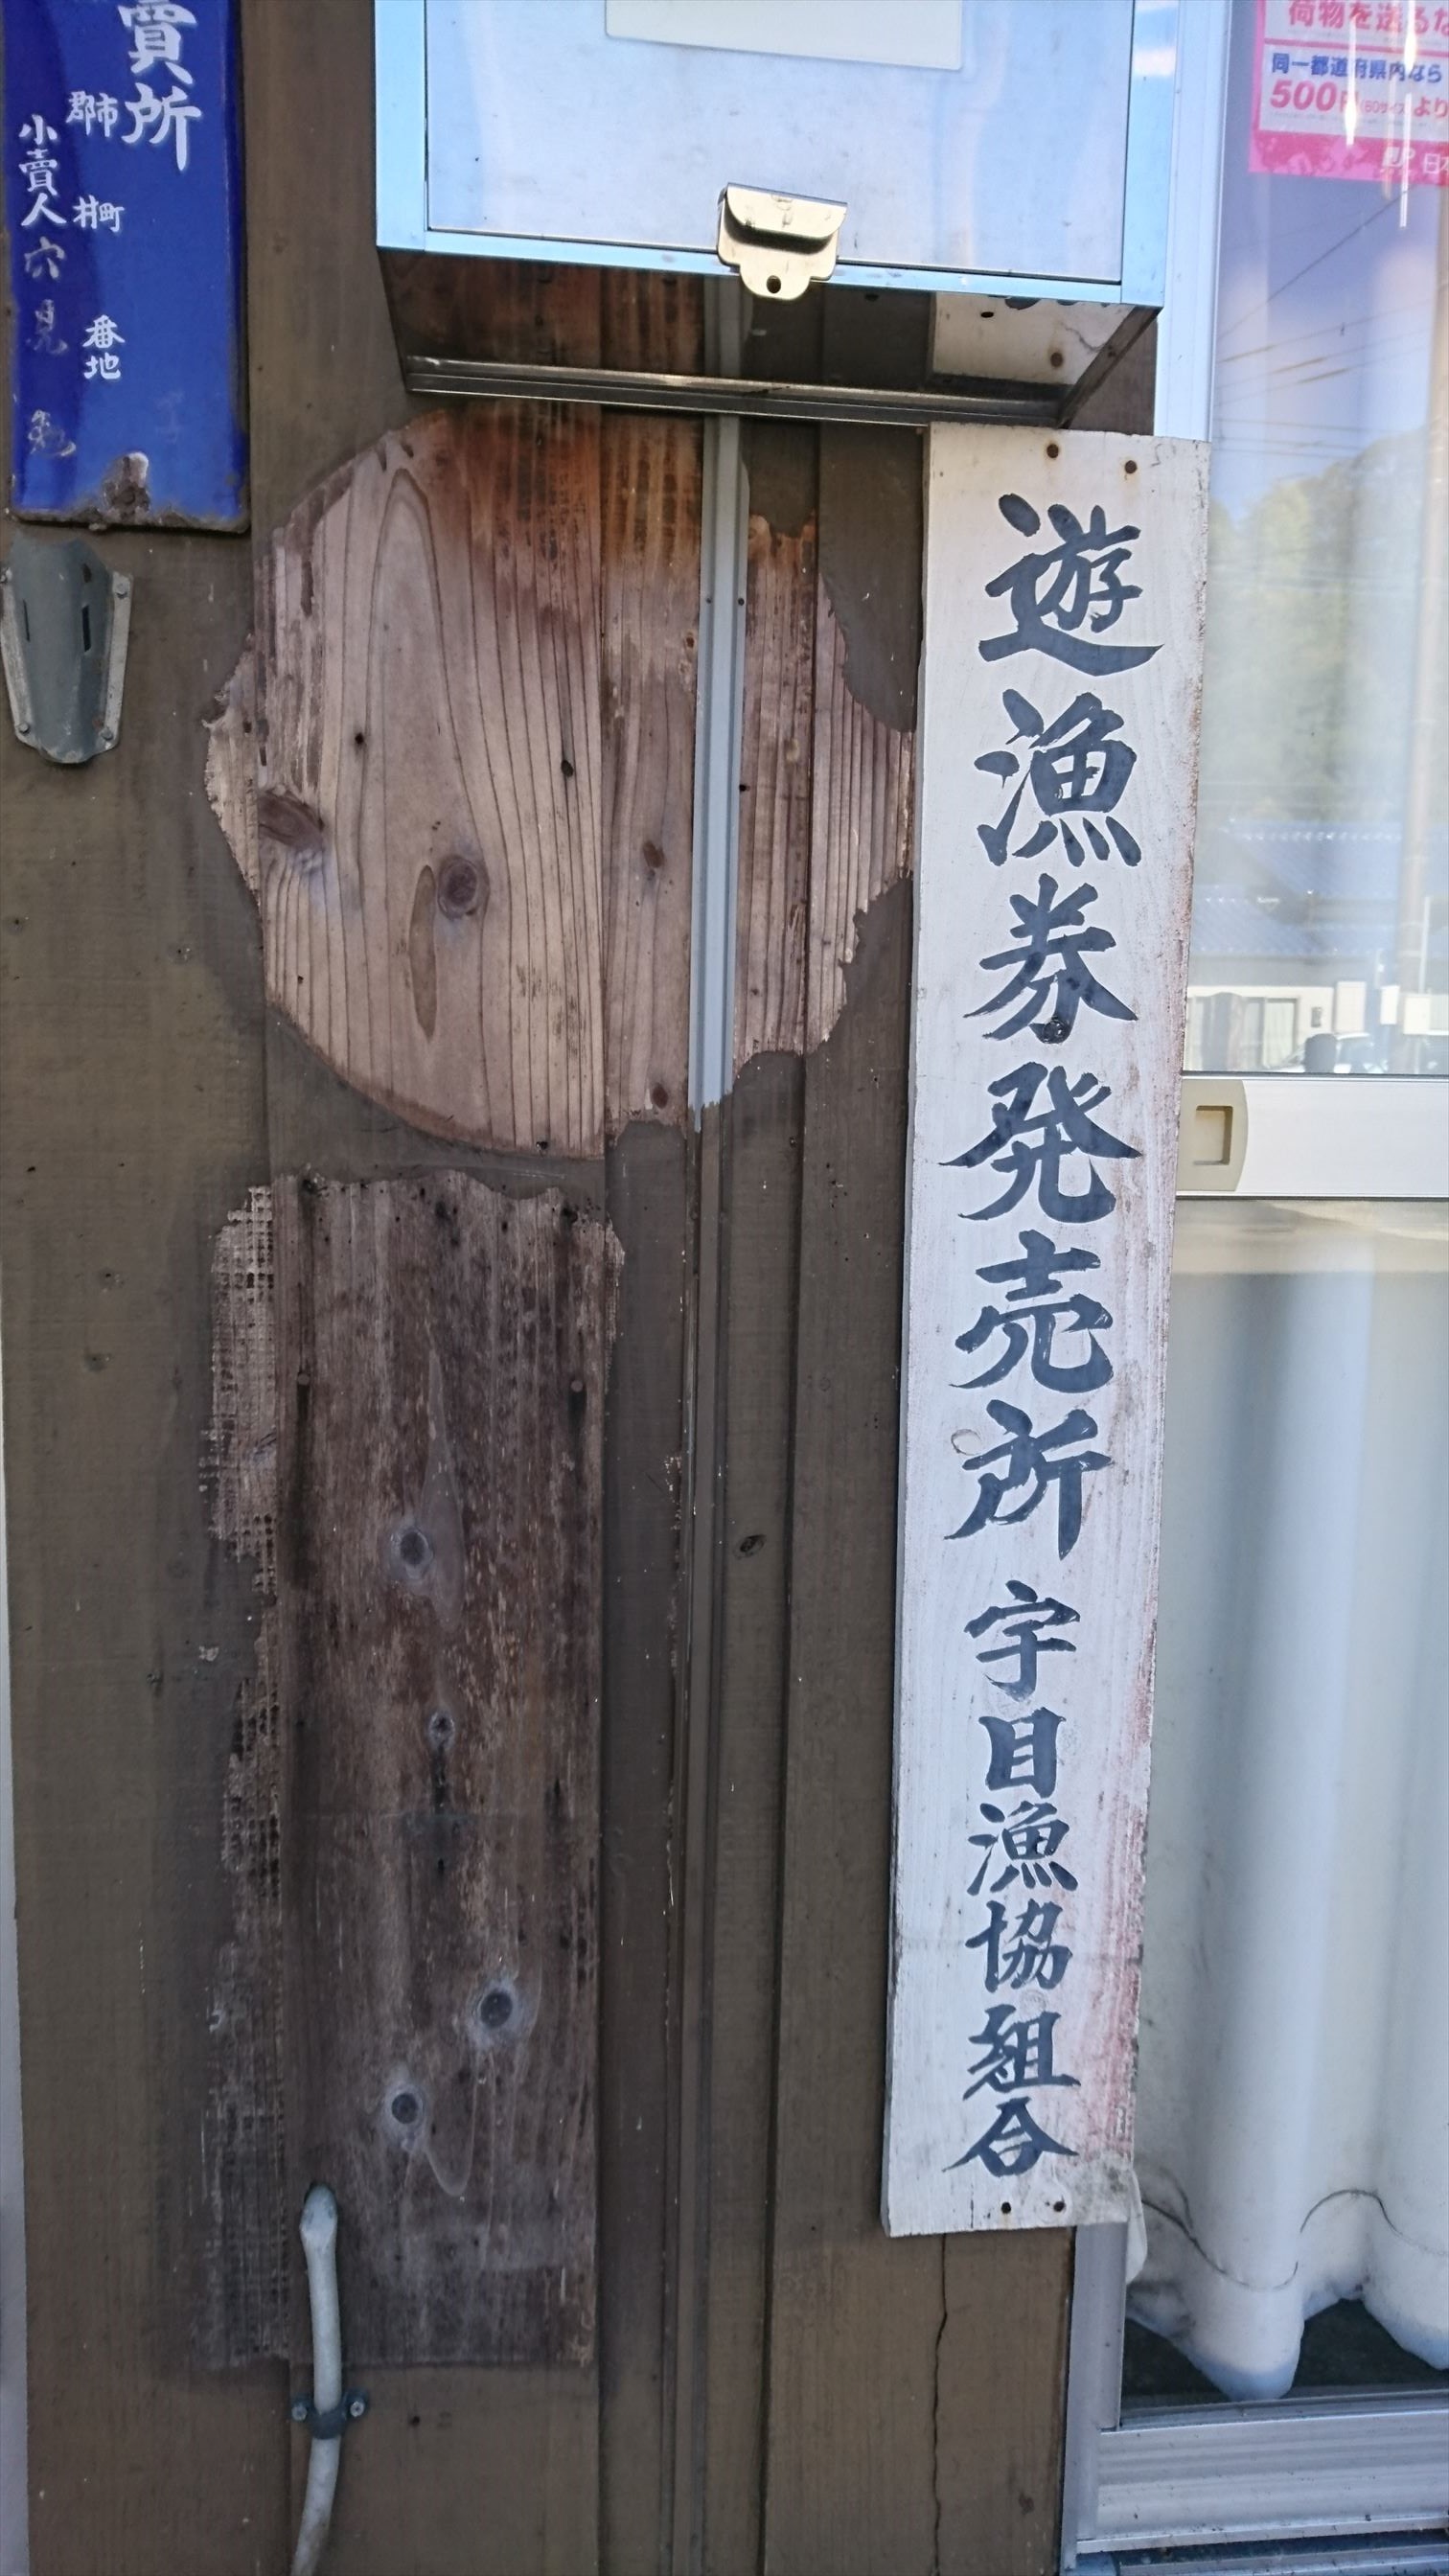 遊漁券発売所 宇目漁協組合
賣所
郡市
村町
番地
小賣人 穴見
荷物を送るな
同一都道府県内なら
500円(60サイズ)より